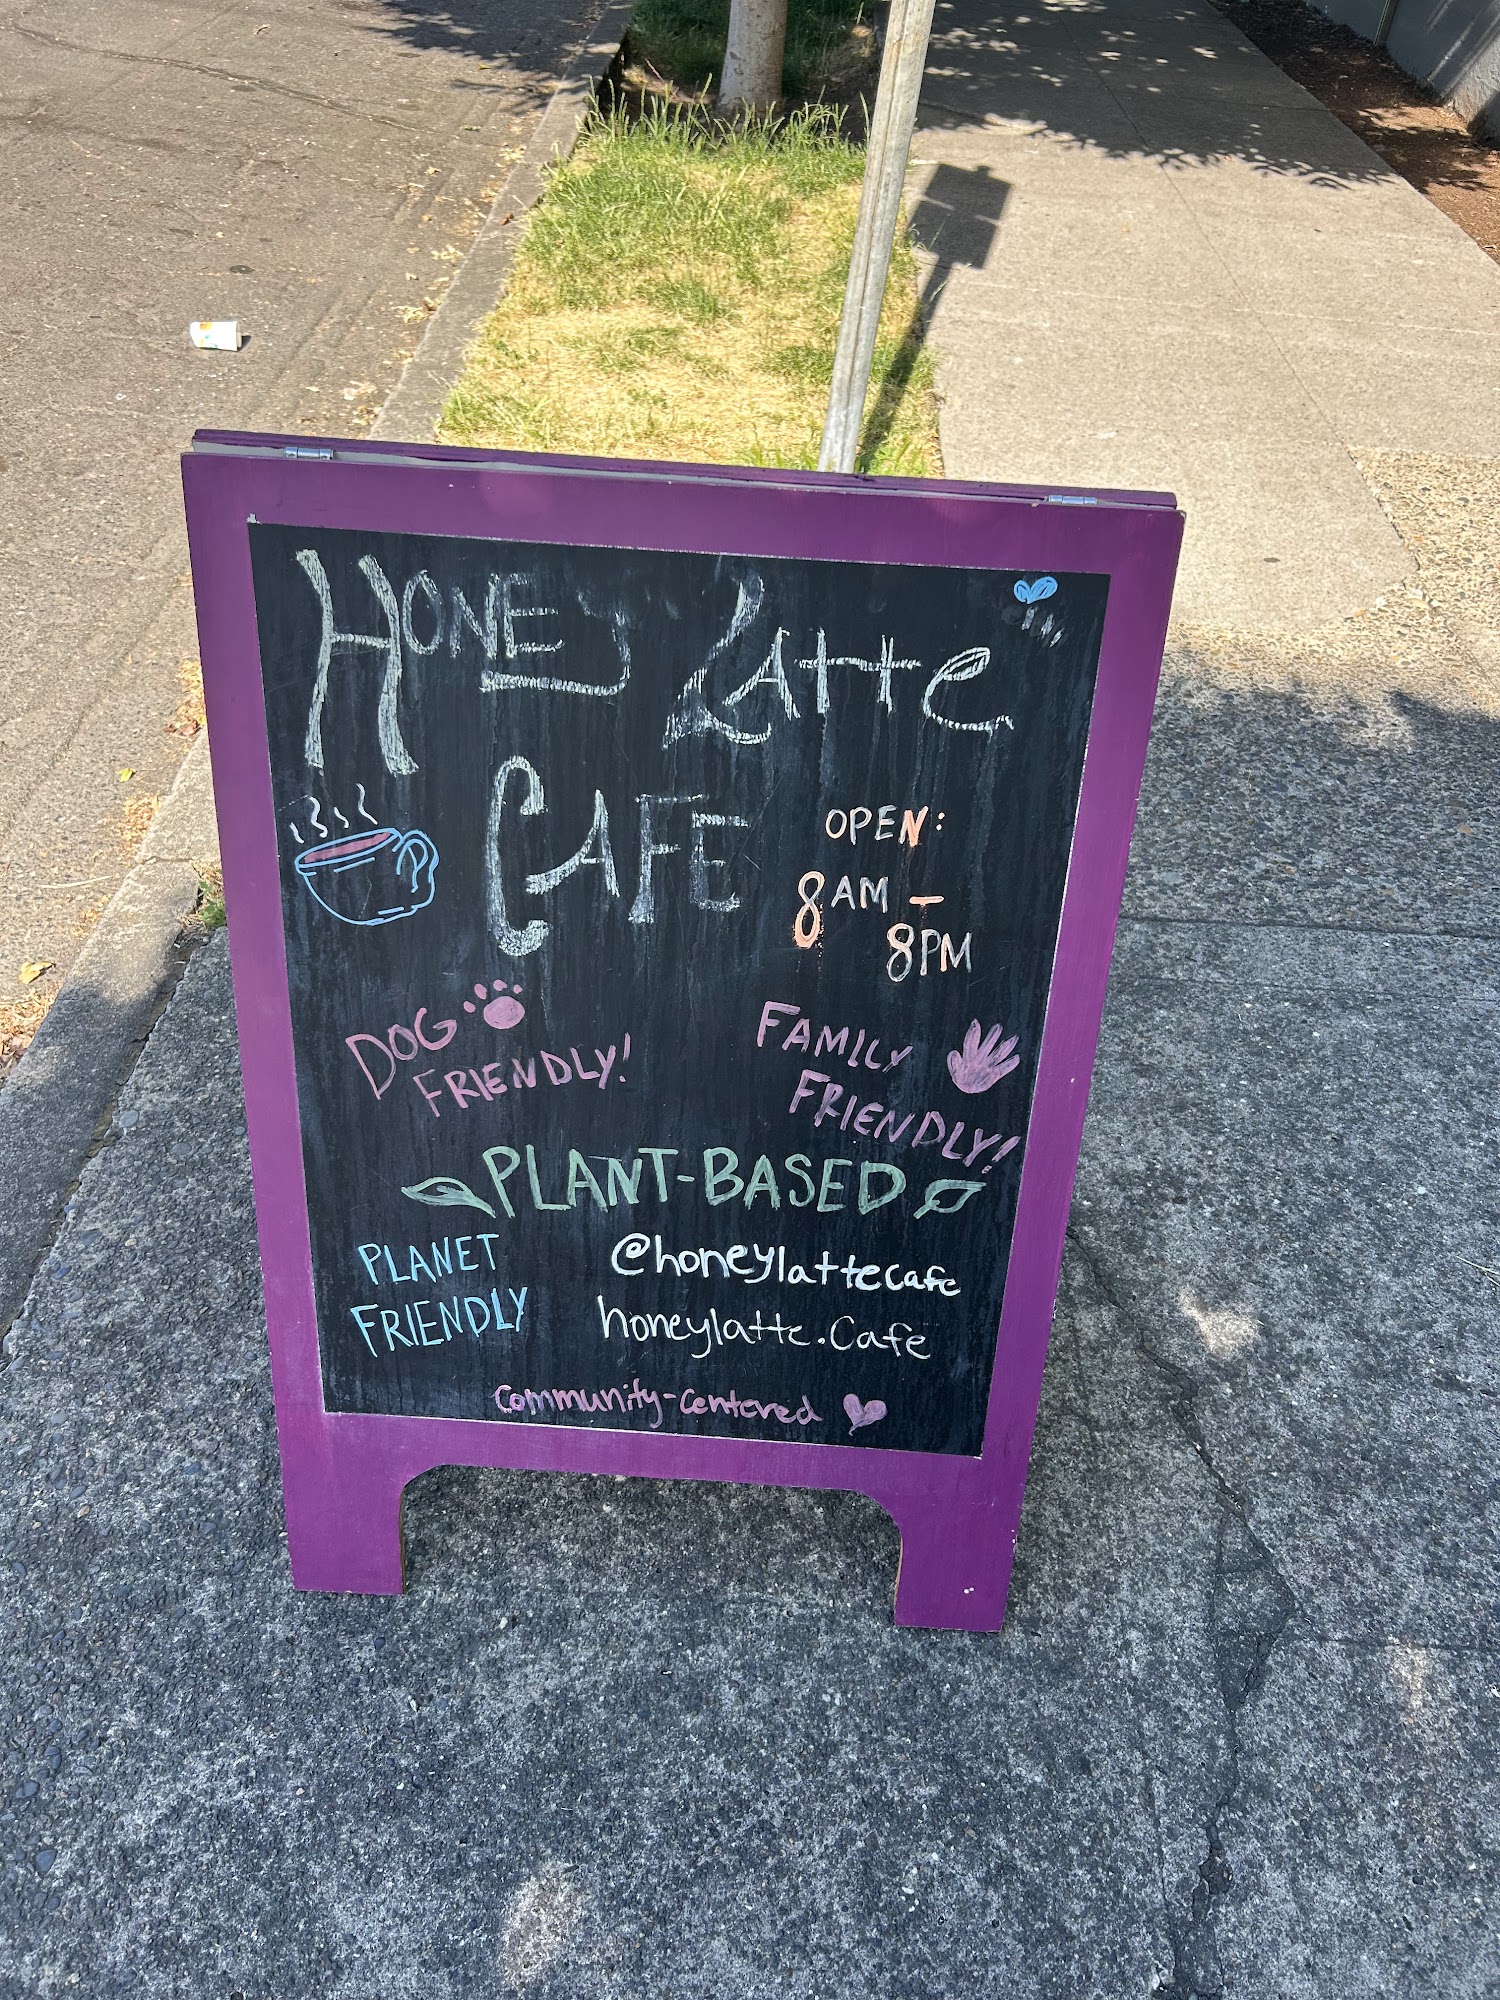 HONEY LATTE
CAFE
OPEN:
8AM –
8PM
DOG
FRIENDLY!
FAMILY
FRIENDLY!
PLANT-BASED
PLANET
FRIENDLY
@honeylattecafe
honeylatte.Cafe
Community-Centered